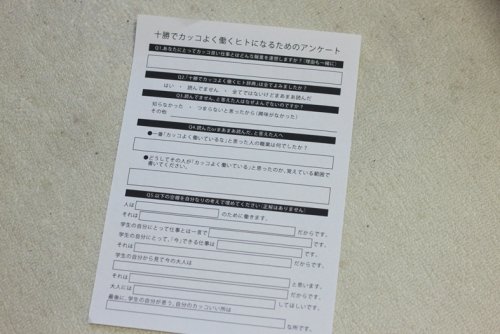 十勝でカッコよく働くヒトになるためのアンケート
Q1.あなたにとってカッコ良い仕事とはどんな職業を連想しますか？(理由も一緒に)
Q2.「十勝でカッコよく働くヒト辞典」は全てよみましたか？
はい ・ 読んでません ・ 全てではないけどまあまあ読んだ
Q3.読んでません、と答えた人はなぜよんでないのですか？
知らなかった ・ つまらないと思ったから(興味がなかった)
その他
Q4.読んだorまあまあ読んだ、と答えた人へ
●一番「カッコよく働いているな」と思った人の職業は何でしたか？
●どうしてその人が「カッコよく働いている」と思ったのか、覚えている範囲で
書いてください。
Q5.以下の空欄を自分なりの考えで埋めてください(正解はありません)
人は のために働きます。
それは だからです。
学生の自分にとって仕事とは一言で です。
学生の自分にとって、「今」できる仕事は です。
それは だからです。
学生の自分から見て今の大人は
と思います。
それは だからです。
大人には してほしいです。
最後に、学生の自分が思う、自分のカッコいい所は
な所です。